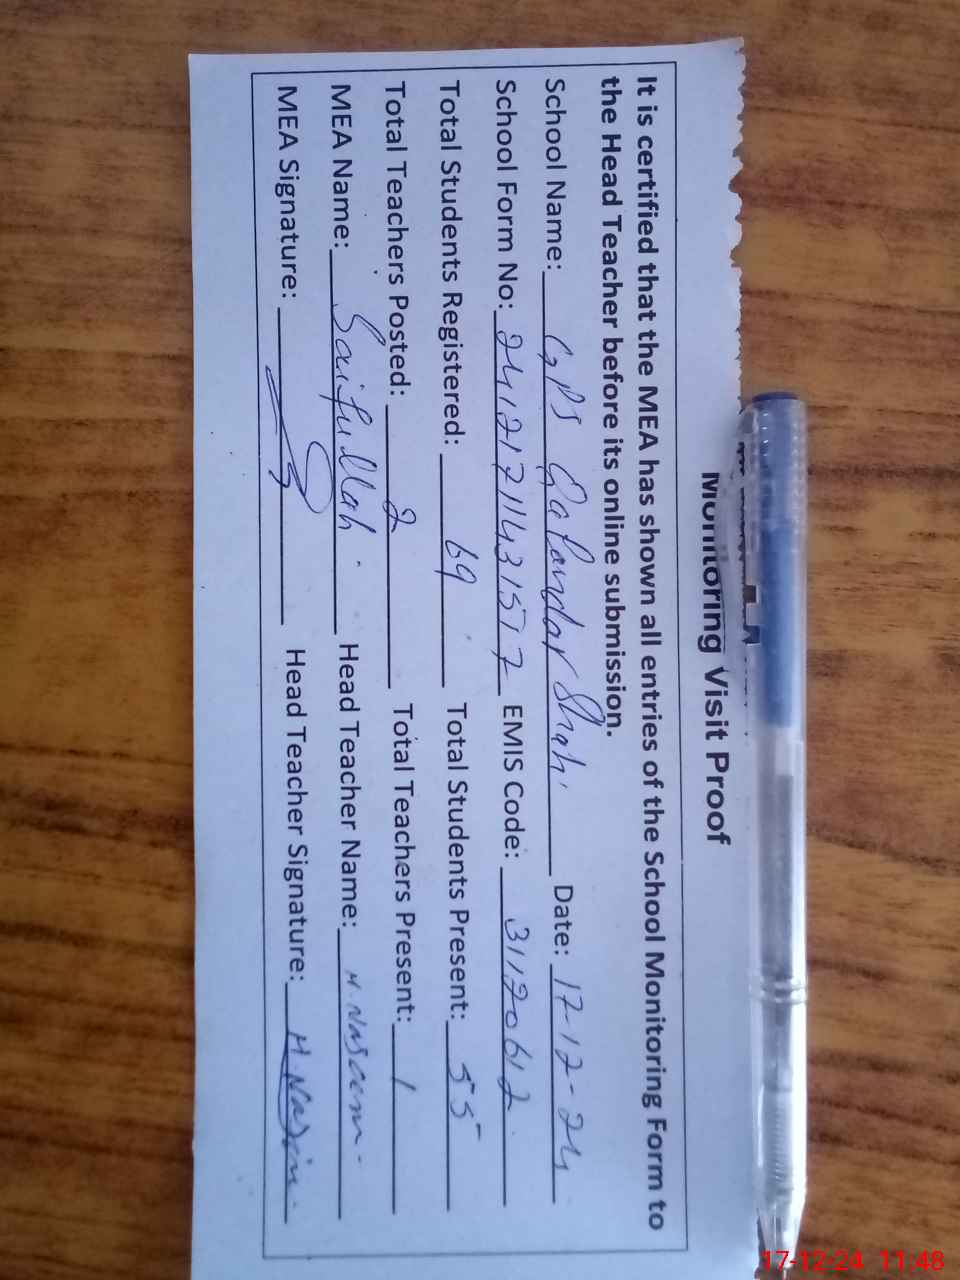 Monitoring Visit Proof
It is certified that the MEA has shown all entries of the School Monitoring Form to
the Head Teacher before its online submission.
School Name: GPS Qalandar Shah Date: 17-12-24
School Form No: EMIS Code: 31120612
Total Students Registered: 69 Total Students Present: 55
Total Teachers Posted: 2 Total Teachers Present: 1
MEA Name: Saifullah Head Teacher Name: M. Naseem
MEA Signature: Head Teacher Signature: M. Nasim
17-12-24 11:48